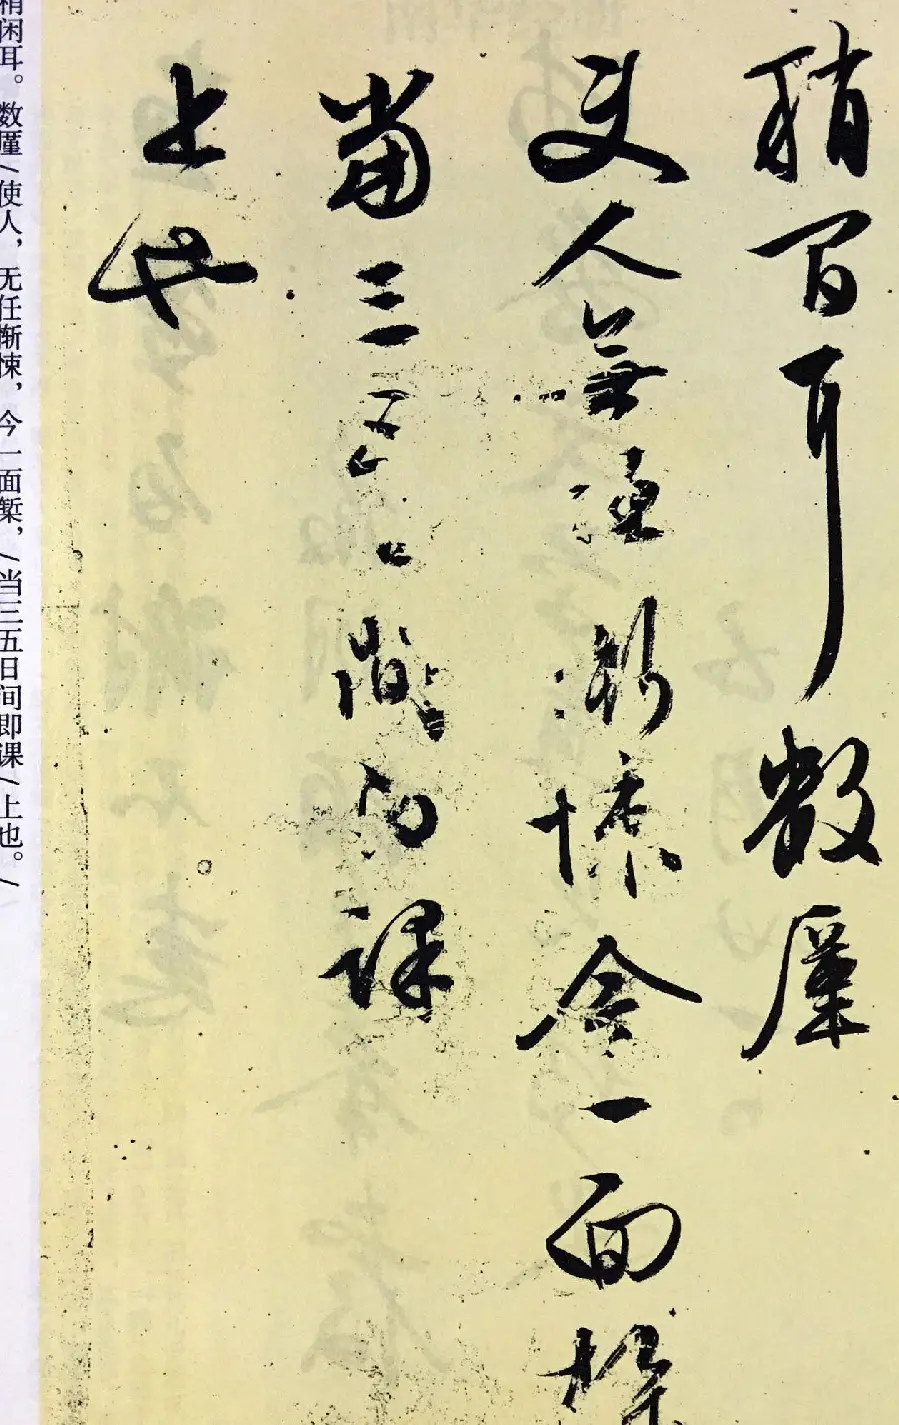 稍闲耳。数廑/使人，无任惭悚，今一面椠，/当三五日间即课/上也。/
稍閒耳數廑
使人無任慚悚今一面槧
當三五日間即課
上也